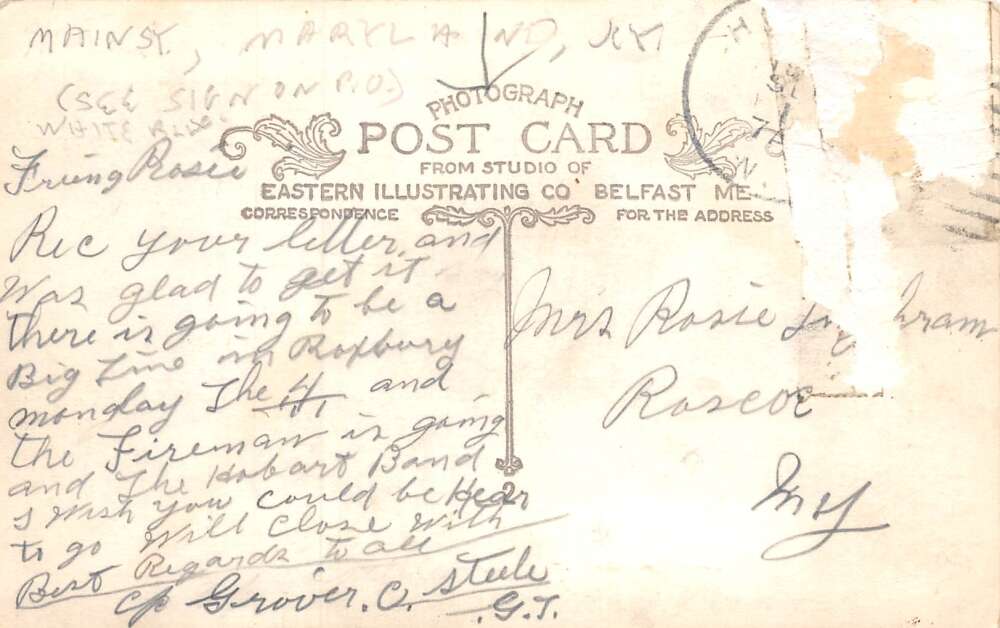 MAIN ST., MARYLAND, NY
(SEE SIGN ON P.O.)
WHITE BLDG.
PHOTOGRAPH
POST CARD
FROM STUDIO OF
EASTERN ILLUSTRATING CO. BELFAST ME
CORRESPONDENCE
FOR THE ADDRESS
Friing Rosie
Rec your letter and
Was glad to get it
there is going to be a
Big Time in Roxbury
monday The 4 and
the Fireman is going
and The Hobart Band
I Wish you could be Hear
to go Will Close With
Best Regards to all
Grover. C. Steele
G.T.
2
Mrs Rosie
Roscoe
NY